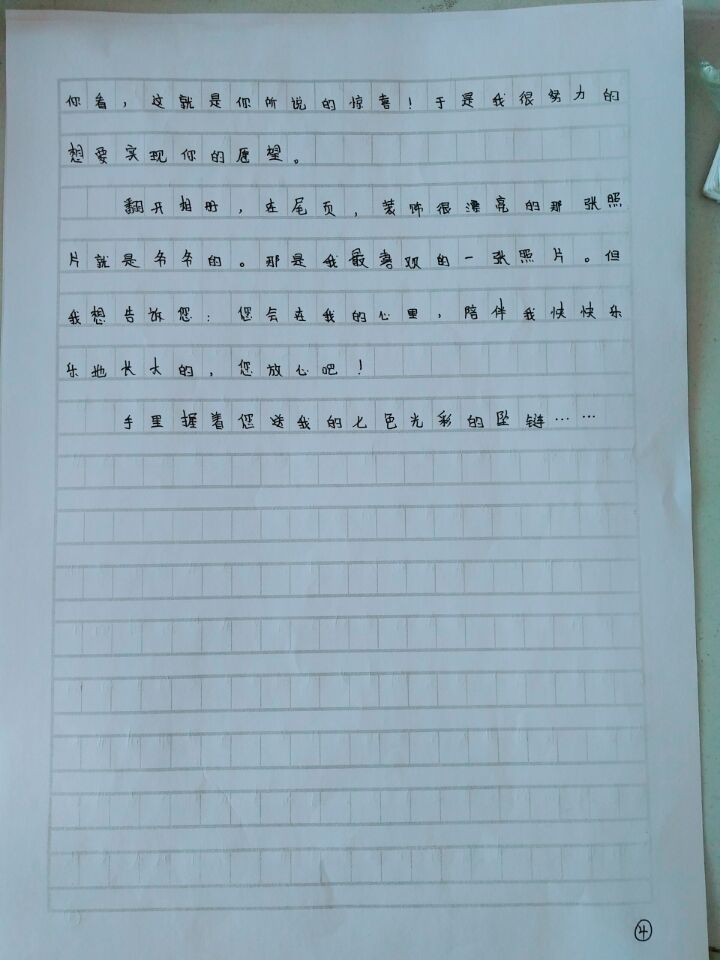 你看，这就是你所说的惊喜！于是我很努力的
想要实现你的愿望。
翻开相册，在尾页，装饰很漂亮的那张照
片就是爷爷的。那是我最喜欢的一张照片。但
我想告诉您：您会在我的心里，陪伴我快快乐
乐地长大的，您放心吧！
手里握着您送我的七色光彩的坠链……
4